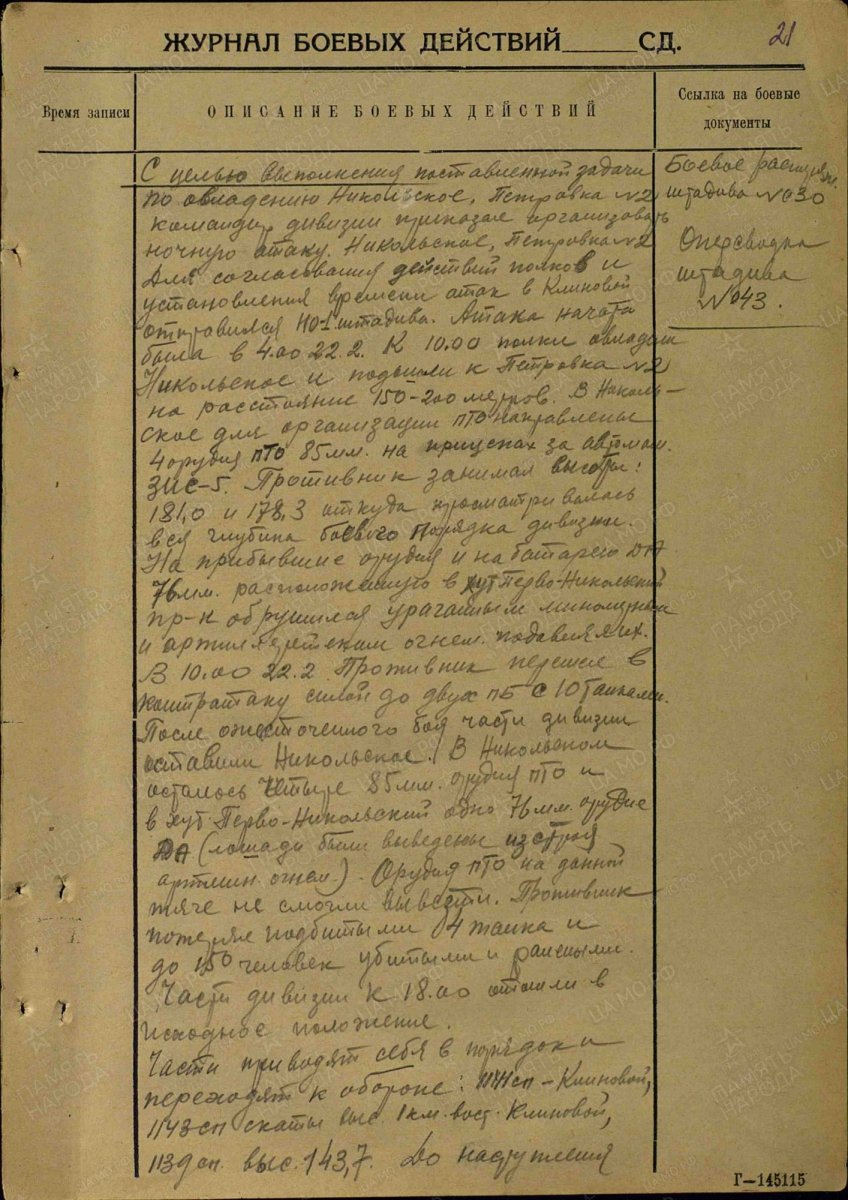 21
ЖУРНАЛ БОЕВЫХ ДЕЙСТВИЙ СД.
Время записи
ОПИСАНИЕ БОЕВЫХ ДЕЙСТВИЙ
Ссылка на боевые
документы
С целью выполнения поставленной задачи
по овладению Никольское, Петровка №2
командир дивизии приказал организовать
ночную атаку. Никольское, Петровка №2
Для согласования действий полков и
установления времени атак в Клиновой
отправился НО-1 штадива. Атака начата
была в 4.00 22.2. К 10.00 полки овладели
Никольское и подошли к Петровка №2
на расстояние 150-200 метров. В Николь-
ское для организации ПТО направлены
4 орудия ПТО 85мм. на прицепах за автомаш.
ЗИС-5. Противник занимал высоты:
181,0 и 178,3 откуда просматривалась
вся глубина боевого порядка дивизии.
На прибывшие орудия и на батарею ДА
76мм. расположенную в хут Перво-Никольский
пр-к обрушился ураганным минометным
и артиллерийским огнем. подавил их.
В 10.00 22.2 Противник перешел в
контратаку силой до двух пб с 10 танками.
После ожесточенного боя части дивизии
оставили Никольское. В Никольском
осталось четыре 85мм. орудия ПТО и
в хут Перво-Никольский одно 76мм. орудие
ДА (лошади были выведены из строя
артмин. огнем). Орудия ПТО на данной
тяге не смогли вывезти. Противник
потерял подбитыми 4 танка и
до 150 человек убитыми и ранеными.
Части дивизии к 18.00 отошли в
исходное положение.
Части приводят себя в порядок и
переходят к обороне: 1141сп - Клиновой,
1143сп скаты выс. 1км. вост. Клиновой,
1139сп. выс. 143,7. До наступления
Боевое распоряж.
штадива №030
Оперсводка
штадива
№043.
Г-145115